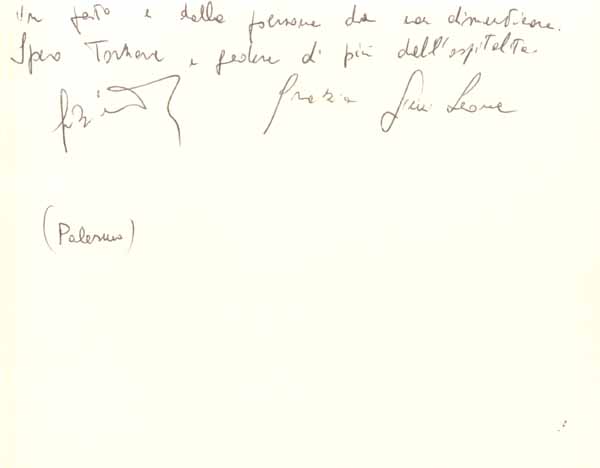 Un posto e delle persone da non dimenticare.
Spero Tornare e godere di più dell'ospitalità.
Grazia Leone
(Palermo)